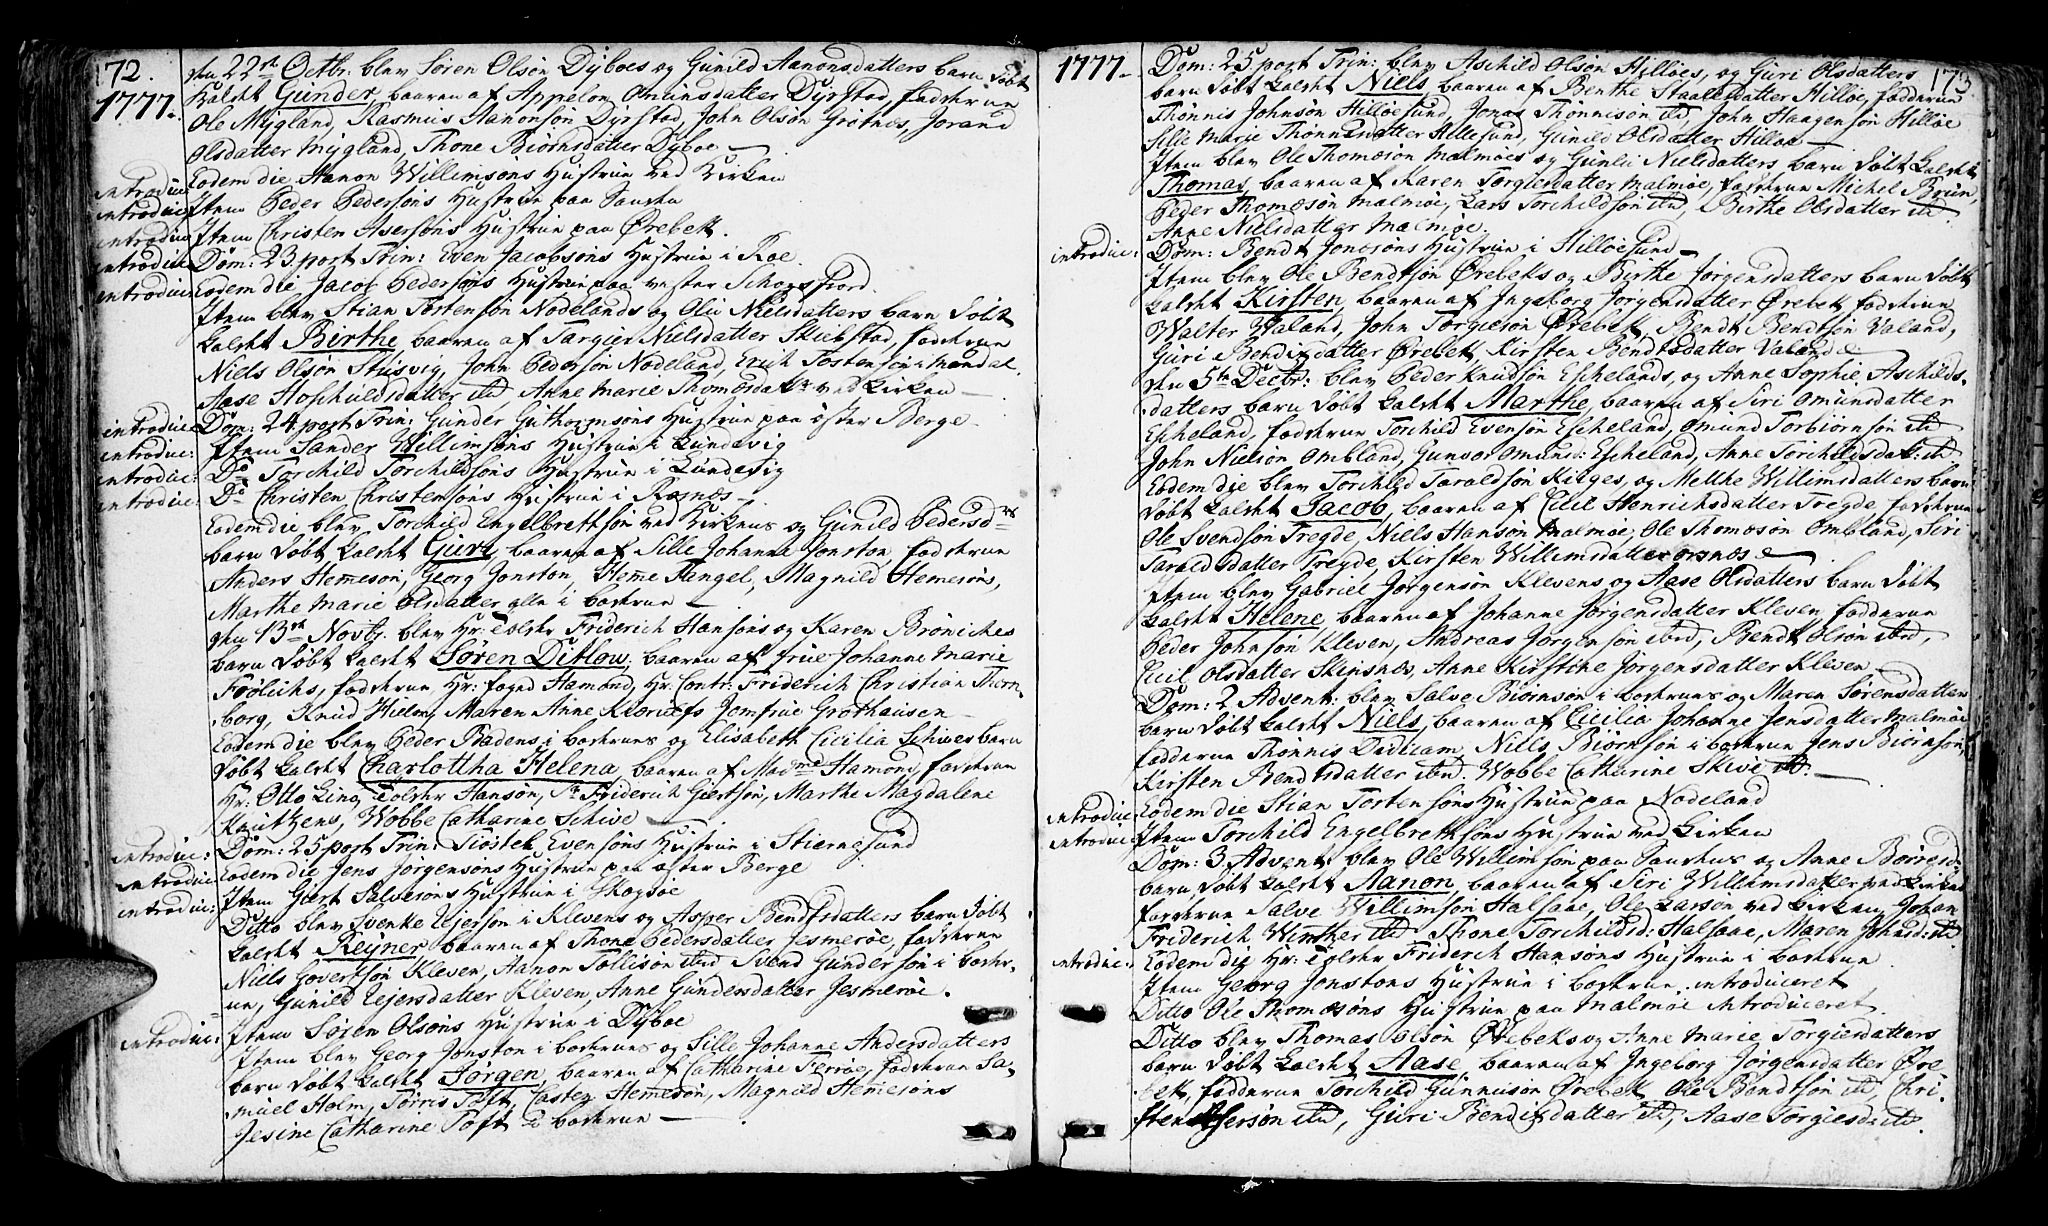 172.
1777.
den 22de Octbr: blev Søren Olsøn Dyboes og Gunild Aanonsdatters barn døbt
kaldet Gunder, baaren af Appelon Omunsdatter Dyrstad, fadderne
Ole Mygland, Rasmus Aanonsøn Dyrstad, John Olsøn Grotnes, Jorand
Olsdatter Mygland, Thone Biørnsdatter Dyboe
introduc: Eodem die Aanon Willimsøns Hustrue ved Kirken
introduc: Item Peder Pedersøns Hustrue paa
introduc: Item Christen Asersøns Hustrue paa Ørebek.
introduc: Dom: 23 post Trin: Even Jacobsøns Hustrue i Roe.
introduc: Eodem die Jacob Pedersøns Hustrue paa vester Schogsfiord.
Item blev Stian Tostensøn Nodelands og Oliv Nielsdatters barn døbt
kaldet Birthe, baaren af Targier Nielsdatter Skiebstad, fadderne
Niels Olsøn Stusvig, John Pedersøn Nodeland, Erich Tostensøn i Mandal,
Aase Hoschuldsdatter ibd Anne Marie Thomæsdatr ved Kirken
introduc: Dom: 24 post Trin: Gunder Guthormsøns Hustrue paa øster Berge
introduc: Item Sander Willimsøns Hustrue i Lundevig
introduc: Do Torchild Torchildsøns Hustrue i Lundevig
introduc: Do Christen Christensøns Hustrue i Rosnes
Eodem die blev Torchild Engelbrettsøn ved Kirkens og Gunild Pedersdrs
barn døbt kaldet Guri, baaren af Sille Johanne Jonston, fadderne
Anders Hemesøn, Georg Jonston, Heme Tangel, Magnild Hemesøns,
Marthe Marie Olsdatter alle i boerne
den 13de Novbr. blev Hr: Tolder Friderich Hansøns og Karen Brøniches
barn døbt kaldet Søren Ditlow, baaren af frue Johanne Marie
Frølichs, fadderne, Hr: foged Hamond, Hr: Contr: Friderich Christian Thorn-
borg, Knud Hielm, Maren Anne Jomfrue Grothausen
Eodem die blev Peder Badens i boerne og Elisabeth Cicilia Schives barn
døbt kaldet Charlottha Helena, baaren af Madme Hamond, fadderne
Hr: Otto Ling, Tolder Hansøn, Sr Friderich Giertsøn, Marthe Magdalene
Kauitzens, Wobbe Catharine Schive
introduc: Dom: 25 post Trin: Tiøstel Evensøns Hustrue i Stiernesund
introduc: Eodem die Jens Jørgensøns Hustrue paa øster Berge
introduc: Item Giert Salvesøns Hustrue i Skogsøe
Ditto blev Svenke Eiersøn i Klevens og Asper Bendtsdatters barn døbt
kaldet Reyner, baaren af Thone Pedersdatter Jesmerøe, fadderne
Niels Govertsøn Kleven, Aanon Tollisøn ibd Svend Gundersøn i boer-
ne, Gunild Eiersdatter Kleven, Anne Gundersdatter Jesmerøe.
introduc: Item Søren Olsøns Hustrue i Dyboe
Item blev Georg Jonston i boernes og Sille Johanne Andersdatters
barn døbt kaldet Jørgen, baaren af Catharine Ferrøe, fadderne Sa-
muel Holm, Tørris Toft, Casten Hemesøn, Magnild Hemesøns
Jesine Catharine Toft i boerne
173
1777.
Dom: 25 post Trin: blev Aschild Olsøn Hilløes, og Guri Olsdatters
barn døbt kaldet Niels, baaren af Benthe Staalesdatter Hilløe, fadderne
Thønnis Johnsøn Hilløesund, Jonas Thønnisøn ibd, John Haagensøn Hilløe
Silie Marie Thønnesdatter Hillesund, Gunild Olsdatter Hilløe
Item blev Ole Thomæsøn Malmøes og Gunli Nielsdatters barn døbt kaldet
Thomas, baaren af Karen Torgiersdatter Malmøe, fadderne Michel Brun,
Peder Thomæsøn Malmøe, Lars Torchildsøn ibd, Birthe Olsdatter ibd
Anne Nielsdatter Malmøe
introduc: Dom: Bendt Jonæsøns Hustrue i Hilløesund
Item blev Ole Bendtsøn Ørebeks og Birthe Jørgensdatters barn døbt
kaldet Kirsten, baaren af Ingeborg Jorgensdatter Ørebek, fadderne
Walter Valand, John Torgiesøn Ørebek, Bendt Bendtsøn Valand,
Guri Bendixdatter Ørebek, Kirsten Bendtsdatter Valand
den 5te Decbr: blev Peder Knudsøn Eskelands, og Anne Sophie Aschilds-
datters barn døbt kaldet Marthe, baaren af Siri Omunsdatter
Eskeland, fadderne Torchild Evensøn Eskeland, Omund Torbiørnsøn ibd
John Nielsøn Ombland, Gunvor Omunsd: Eskeland, Anne Torchildsdat: ibd
Eodem die blev Torchild Taraldsøn Kieges, og Methe Willimsdatters barn
døbt kaldet Jacob, baaren af Cicil Henrichsdatter Tregde fadderne
Ole Svendsøn Tregde, Niels Hansøn Malmøe, Ole Thomæsøn Ombland, Siri
Taraldsdatter Tregde, Kirsten Willimsdatter Rosnes
Item blev Gabriel Jørgensøn Klevens og Aase Olsdatters barn døbt
kaldet Helene, baaren af Johanne Jørgensdatter Kleven fadderne
Peder Johnsøn Kleven, Andreas Jørgensøn ibd, Bendt Olsøn ibd,
Cicil Olsdatter Skinsnes, Anne Kirstine Jørgensdatter Kleven
Dom: 2 Advent: blev Salve Biørnsøn i boernes og Maren Sørensdatter
barn døbt kaldet Niels, baaren af Cicilia Johanne Jensdatter Malmøe
fadderne Thønnis Dedekam, Niels Biørnsøn i boerne Jens Biørnsøn,
Kirsten Bendtsdatter ibd. Wobbe Catharine Skive ibd.
introduc: Eodem die Stian Tostensøns Hustrue paa Nodeland
introduc: Item Torchild Engelbrettsøns Hustrue ved Kirken
Dom: 3 Advent: blev Ole Willimsøn paa og Anne Børresd:
barn døbt kaldet Aanon, baaren af Siri Willimsdatter ved Kirken
fadderne Salve Willimsøn Halsaae, Ole Larsøn ved Kirken, Johan
Friderich Winther ibd Thone Torchildsd: Halsaae, Maren Johnsd: ibd
introduc: Eodem die Hr: Tolder Friderich Hansøns Hustrue i boerne
Item Georg Jonstons Hustrue i boerne introduceret
Ditto Ole Thomæsøns Hustrue paa Malmøe introduceret
Ditto blev Thomas Olsøn Ørebeks og Anne Marie Torgiersdatters
barn døbt kaldet Aase, baaren af Ingeborg Jørgensdatter Øre-
bek, fadderne Torchild Gunnusøn Ørebek, Ole Bendtsøn ibd, Chri-
sten Asersøn ibd, Guri Bendixdatter ibd, Aase Torgiesd: ibd.